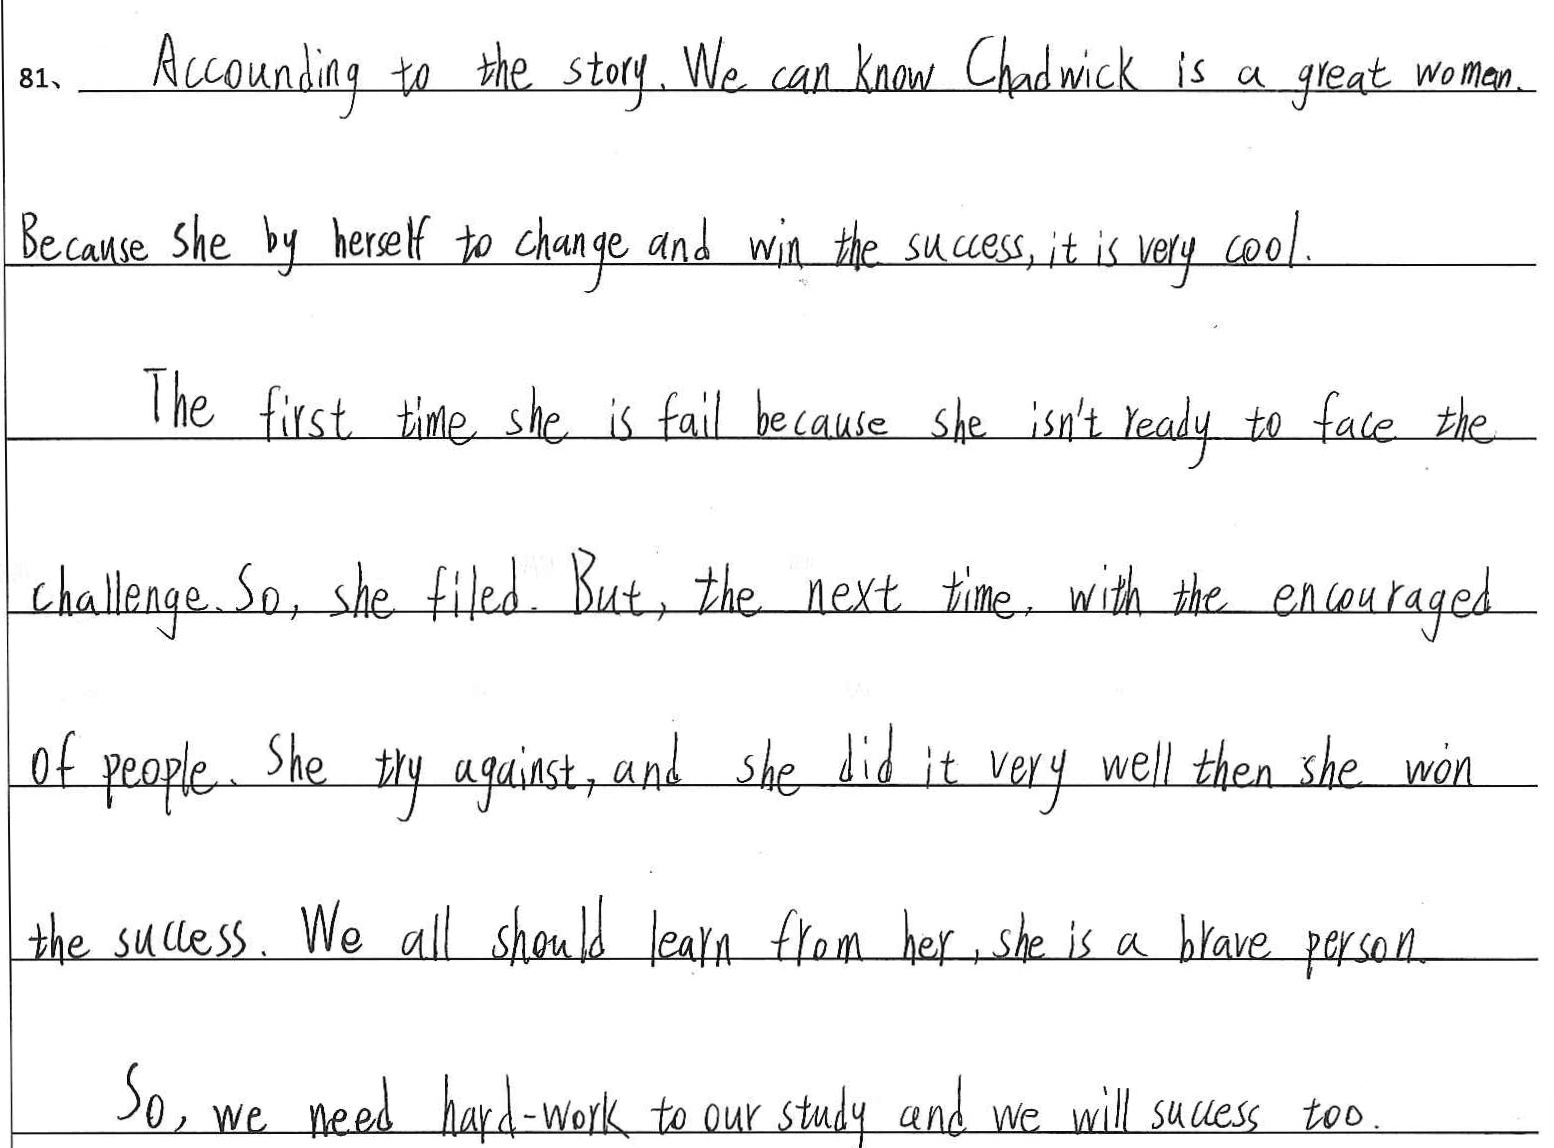 81、 Accounding to the story. We can know Chadwick is a great women.
Because she by herself to change and win the success, it is very cool.
The first time she is fail because she isn't ready to face the
challenge. So, she filed. But, the next time, with the encouraged
of people. She try against, and she did it very well then she won
the success. We all should learn from her, she is a brave person.
So, we need hard-work to our study and we will success too.